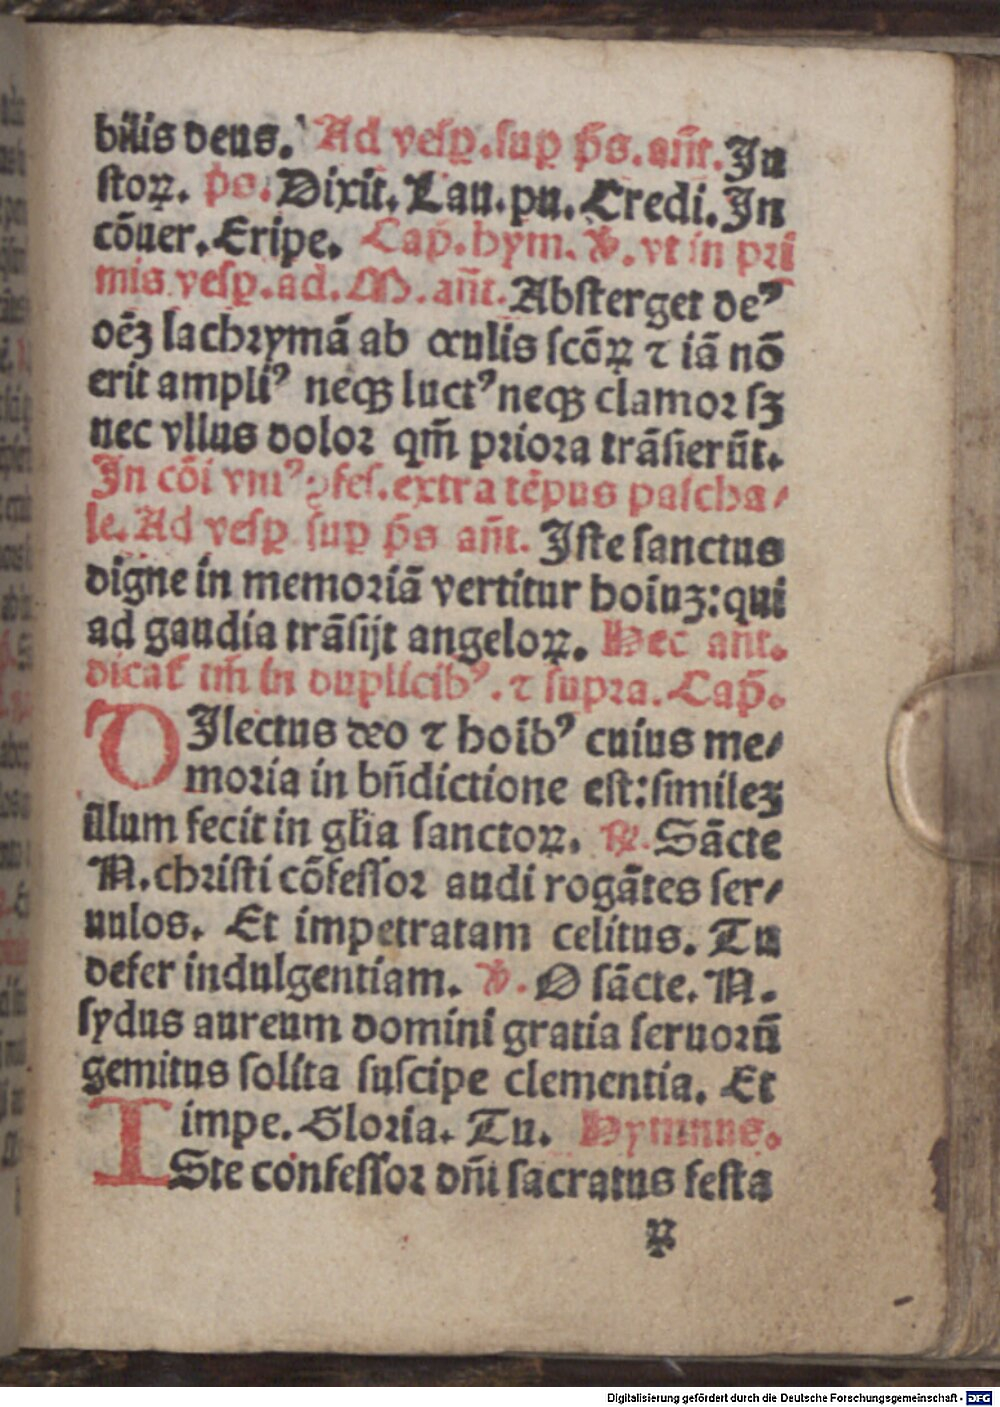 bilis deus. Ad vesꝑ. suꝑ p̄s. an̄t. Ju
stoꝝ. p̄s. Dixit. Lau. pu. Credi. In
cōuer. Eripe. Cap̄. hym. ℣. vt in pri
mis vesꝑ. ad. M. an̄t. Absterget deꝰ
oēꝫ lachrymā ab oculis scōꝝ ⁊ iā nō
erit ampliꝰ neqꝫ luctꝰ neqꝫ clamor sꝫ
nec vllus dolor qm̄ priora trāsierūt.
In cōi vniꝰ ꝯfes. extra tēpus pascha/
le. Ad vesꝑ suꝑ p̄s an̄t. Iste sanctus
digne in memoriā vertitur hoīuꝫ: qui
ad gaudia trāsijt angeloꝝ. Hec ant.
dicat᷑ tm̄ in duplicibꝰ. ⁊ supra. Cap̄.
DIlectus deo ⁊ hoībꝰ cuius me/
moria in bn̄dictione est: simileꝫ
illum fecit in gl̄ia sanctoꝝ. ℟. Sācte
N. christi cōfessor audi rogātes ser/
uulos. Et impetratam celitus. Tu
defer indulgentiam. ℣. O sācte. N.
sydus aureum domini gratia seruorū
gemitus solita suscipe clementia. Et
impe. Gloria. Tu. Hymnus.
ISte confessor dn̄i sacratus festa
ꝝ
Digitalisierung gefördert durch die Deutsche Forschungsgemeinschaft - DFG